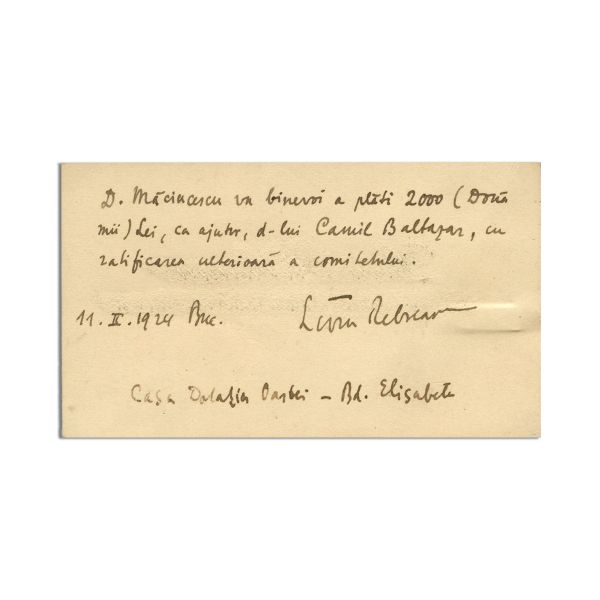 D. Măciucescu va binevoi a plăti 2000 (Două
mii) Lei, ca ajutor, d-lui Camil Baltazar, cu
ratificarea ulterioară a comitetului.
11. II. 1924 Buc. Liviu Rebreanu
Casa - Bd. Elisabeta